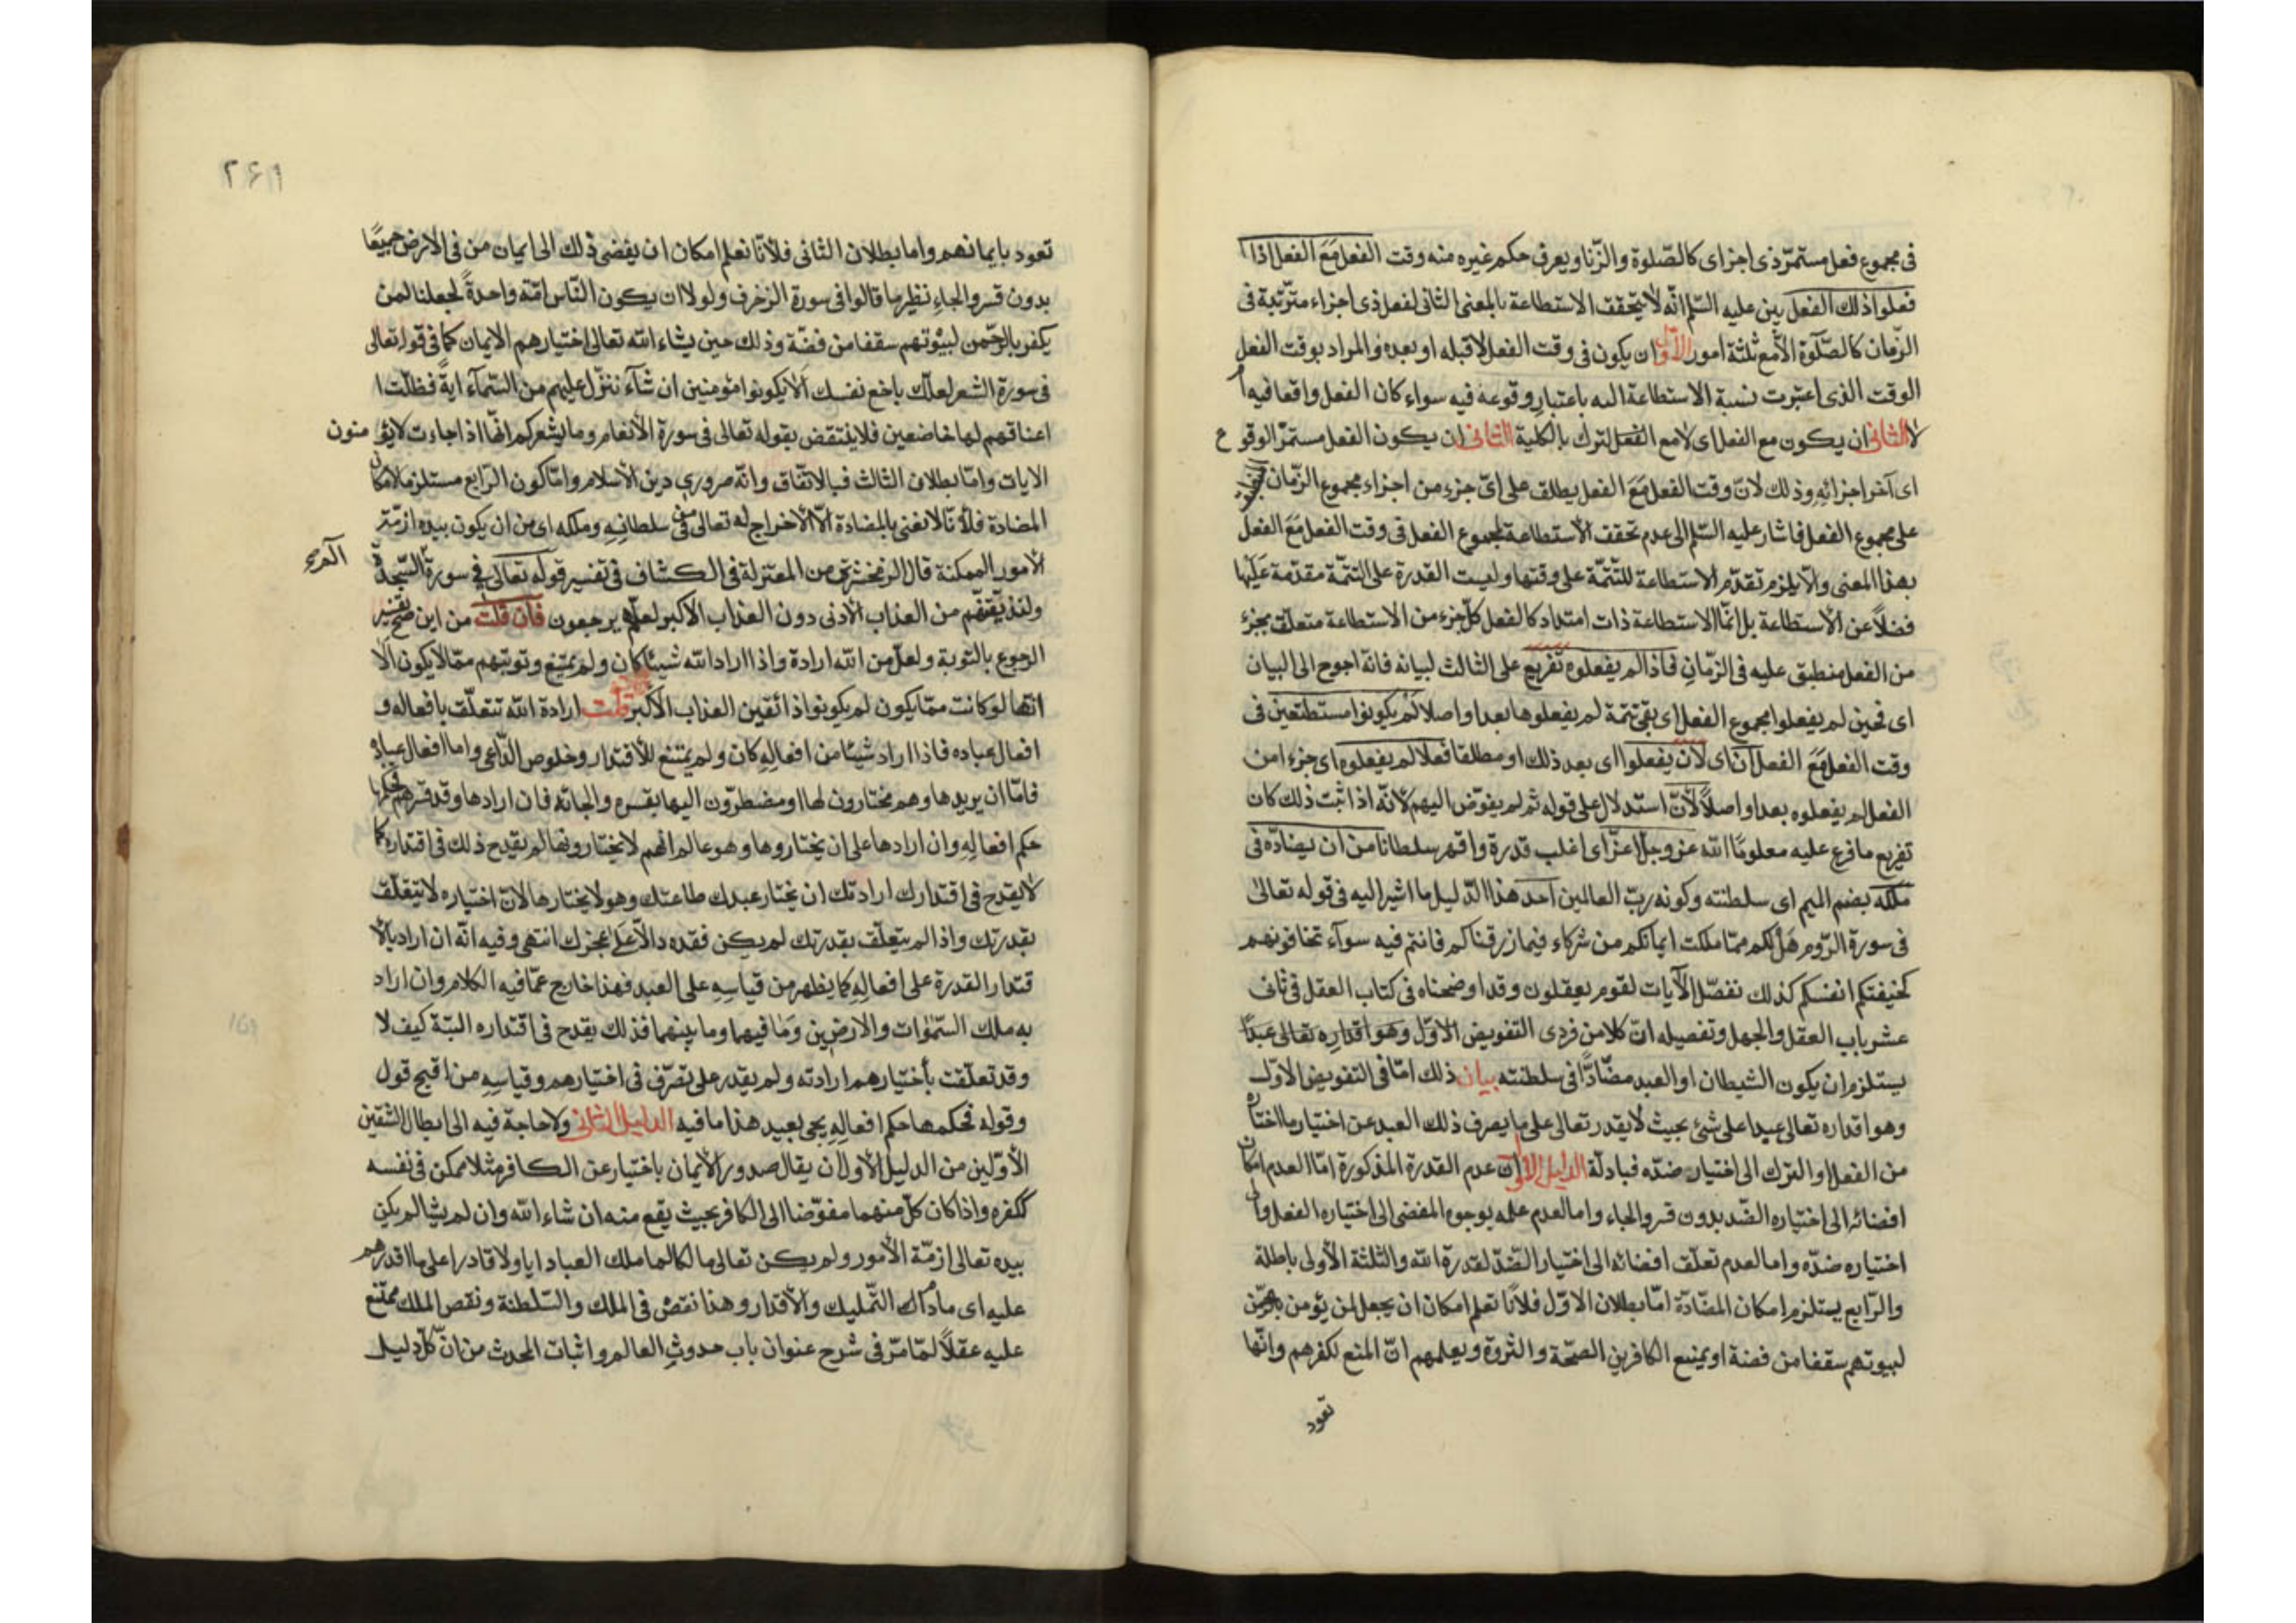 فى مجموع فعل مستمرّ ذى اجزاى كالصّلوة والزّنا ويعرف حكم غيره منه وقت الفعل مَعَ الفعل اذا
فعلوا ذلك الفعل بين عليه السّلم انّه لا يتحقق الاستطاعة بالمعنى الثانى لفعل ذى اجزاء مترتّبة فى
الزّمان كالصّلوة الّا مع ثلثة امور الأوّل ان يكون فى وقت الفعل لا قبله او بعده والمراد بوقت الفعل
الوقت الذى اعتبرت نسبة الاستطاعة اليه باعتبار وقوعه فيه سواء كان الفعل واقعا فيه ام
لا الثانى ان يكون مع الفعل اى لا مع الفعل لترك بالكلية الثانى ان يكون الفعل مستمرّ الوقوع
اى آخر اجزائه وذلك لانّ وقت الفعل مَعَ الفعل يطلق على اىّ جزء من اجزاء مجموع الزّمان
على مجموع الفعل فاشار عليه السّلم الى عدم تحقق الاستطاعة لمجموع الفعل فى وقت الفعل مَعَ الفعل
بهذا المعنى والّا يلزم تقدّم الاستطاعة للتتمّة على وقتها وليست القدرة على التتمّة مقدّمة عليها
فضلاً عن الاستطاعة بل انّما الاستطاعة ذات امتداد كالفعل كلّ جزء من الاستطاعة متعلّق بجزء
من الفعل منطبق عليه فى الزّمان فاذا لم يفعلوه تفريع على الثالث لبيانه فانّه احوج الى البيان
اى فحين لم يفعلوا مجموع الفعل اى بقى تتمة لم يفعلوها بعد او اصلا لم يكونوا مستطيعين فى
وقت الفعل مَعَ الفعل ان اى لان يفعلوا اى بعد ذلك او مطلقا فعلا لم يفعلوه اى جزءا من
الفعل لم يفعلوه بعد او اصلاً لأنّ استدلال على قوله ثم لم يفوّض اليهم لانّه اذا ثبت ذلك كان
تفريع ما فرع عليه معلومًا الله عز وجل اعزّ اى اغلب قدرة واقهر سلطانا من ان يضادّه فى
ملكه بضم الميم اى سلطنته وكونه ربّ العالمين احد هذا الدّليل ما اشير اليه فى قوله تعالى
فى سورة الرّوم هَل لكم ممّا ملكت ايمانكم من شركاء فيما رزقناكم فانتم فيه سوآء تخافونهم
كخيفتكم انفسكم كذلك نفصّل الآيات لقوم يعقلون وقد اوضحناه فى كتاب العقل فى ثانى
عشر باب العقل والجهل وتفصيله انّ كلا من فردى التفويض الاوّل وهو اقداره تعالى عبدًا
يستلزم ان يكون الشيطان او العبد مضّادًّا فى سلطنته بيان ذلك امّا فى التفويض الاوّل
وهو اقداره تعالى عبدا على شئ بحيث لا يقدر تعالى على ما يصرف ذلك العبد عن اختيار ما اختاره
من الفعل او الترك الى اختيار ضدّه فبادلّة الدليل الاوّل ان عدم القدرة المذكورة امّا لعدم امكان
افضائه الى اختياره الضّد بدون قسر والجاء واما لعدم علمه بوجوه المفضى الى اختياره الفعل وان
اختياره ضدّه واما لعدم تعلّق افضائه الى اختيار الضّدّ لقدرة الله والثلثة الأولى باطلة
والرّابع يستلزم امكان المضّادّة امّا بطلان الاوّل فلأنّا نعلم امكان ان يجعل لمن يؤمن بالرحمن
لبيوتهم سقفا من فضة او يمنع الكافرين الصحّة والثروة ويعلمهم انّ المنع لكفرهم وانّها
تعود
٢٦١
تعود بايمانهم واما بطلان الثانى فلأنّا نعلم امكان ان يفضى ذلك الى ايمان من فى الارض جميعًا
بدون قسر والجاءِ نظير ما قالوا فى سورة الزخرف ولولا ان يكون النّاس امّة واحدةً لجعلنا لمن
يكفر بالرّحمن لبيوتهم سقفا من فضّة وذلك حين يشاء الله تعالى اختيارهم الايمان كما فى قوله تعالى
فى سورة الشعر لعلّك باخع نفسك الّا يكونوا مؤمنين ان شآء ننزّل عليهم من السّمآء ايةً فظلّت
اعناقهم لها خاضعين فلا ينتقض بقوله تعالى فى سورة الأنعام وما يشعركم انّها اذا جاءت لا يؤمنون
الايات وامّا بطلان الثالث فبالاتّفاق وانّه ضرورى دين الأسلام وامّا كون الرّابع مستلزما لامكان
المضادة فلأنّا لا نعنى بالمضادة الّا الاخراج له تعالى من سلطانِهِ وملكه اى من ان يكون بيده ازمّة
الأمور الممكنة قال الزمخشرى من المعتزلة فى الكشاف فى تفسير قوله تعالى فى سورة السّجدة
ولنذيقنّهم من العذاب الأدنى دون العذاب الأكبر لعلّهم يرجعون فان قلت من اين صح تفسير
الرجوع بالتوبة ولعلّ من الله ارادة واذا اراد الله شيئا كان ولم يمتنع وتوبتهم ممّا لا يكون الّا
انّها لو كانت ممّا يكون لم يكونوا ذائقين العذاب الأكبر قلت ارادة الله تتعلّق بافعاله و
افعال عباده فاذا اراد شيئا من افعالِهِ كان ولم يمتنع للأقتدار وخلوص الدّاعى واما افعال عباده
فامّا ان يريدها وهم مختارون لها او مضطرّون اليها بقسره والجائه فان ارادها وقد قسرهم فحكمها
حكم افعالِهِ وان ارادها على ان يختاروها وهو عالم انّهم لا يختارونها لم يقدح ذلك فى اقتداره كما
لا يقدح فى اقتدارك ارادتك ان يختار عبدك طاعتك وهو لا يختارها لانّ اختياره لا يتعلّق
بقدرتك واذا لم يتعلّق بقدرتك لم يكن فقده دالًّا على عجزك انتهى وفيه انّه ان اراد بالا
قتدار القدرة على افعالِهِ كما يظهر من قياسِهِ على العبد فهذا خارج عمّا فيه الكلام وان اراد
به ملك السّموات والارضين وَمَا فيهما وما بينهما فذلك يقدح فى اقتداره البتّة كيف لا
وقد تعلّقت بأختيارهم ارادته ولم يقدر على تصرّف فى اختيارهم وقياسِهِ من اقبح قول
وقوله فحكمها حكم افعالِهِ يحى بعيد هذا ما فيه الدليل الثانى ولا حاجة فيه الى ابطال الشقين
الأوّلين من الدليل الأول ان يقال صدور الأيمان باختيار عن الكافر مثلا ممكن فى نفسه
ككفره واذا كان كلّ منهما مفوّضا الى الكافر بحيث يقع منه ان شاء الله وان لم يشا لم يكن
بيده تعالى ازمّة الأمور ولم يكن تعالى مالكا لما ملك العباد اياه ولا قادرا على ما اقدرهم
عليه اى ما دام ذلك التّمليك والأقدار وهذا نقص فى الملك والسّلطنة ونقص الملك ممتنع
عليه عقلاً لمّا مرّ فى شرح عنوان باب حدوث العالم واثبات المحدث من انّ كلّ دليل